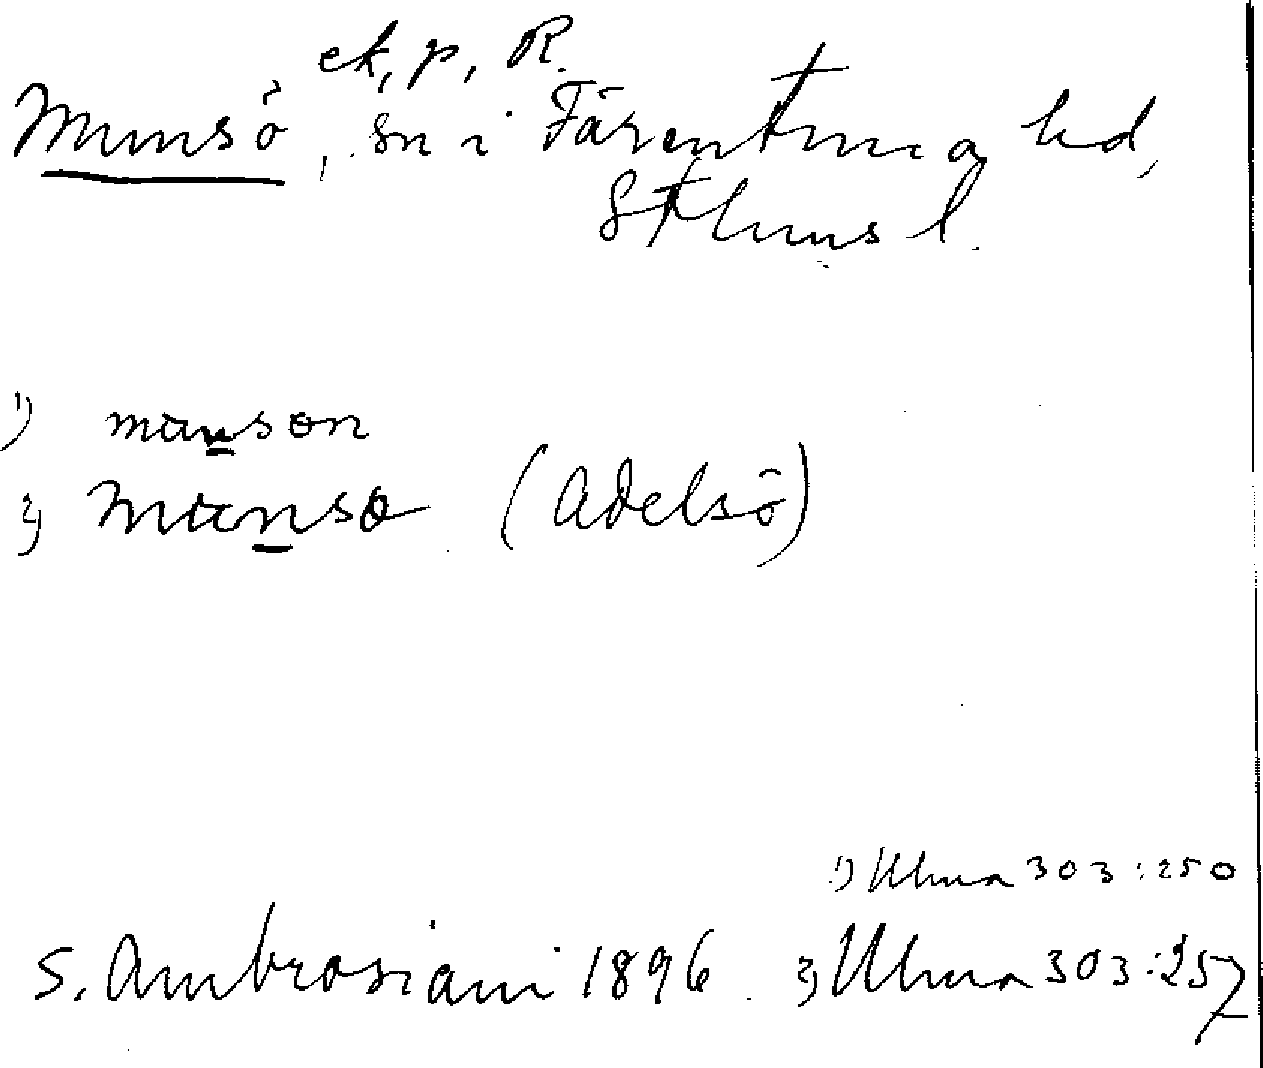 ek, p, R.
Munsö, sn i Färentuna hd,
Sthlms l.
1) munson
2) munsø (Adelsö)
1) Ulma 303:250
S. Ambrosiani 1896. 2) Ulma 303:257